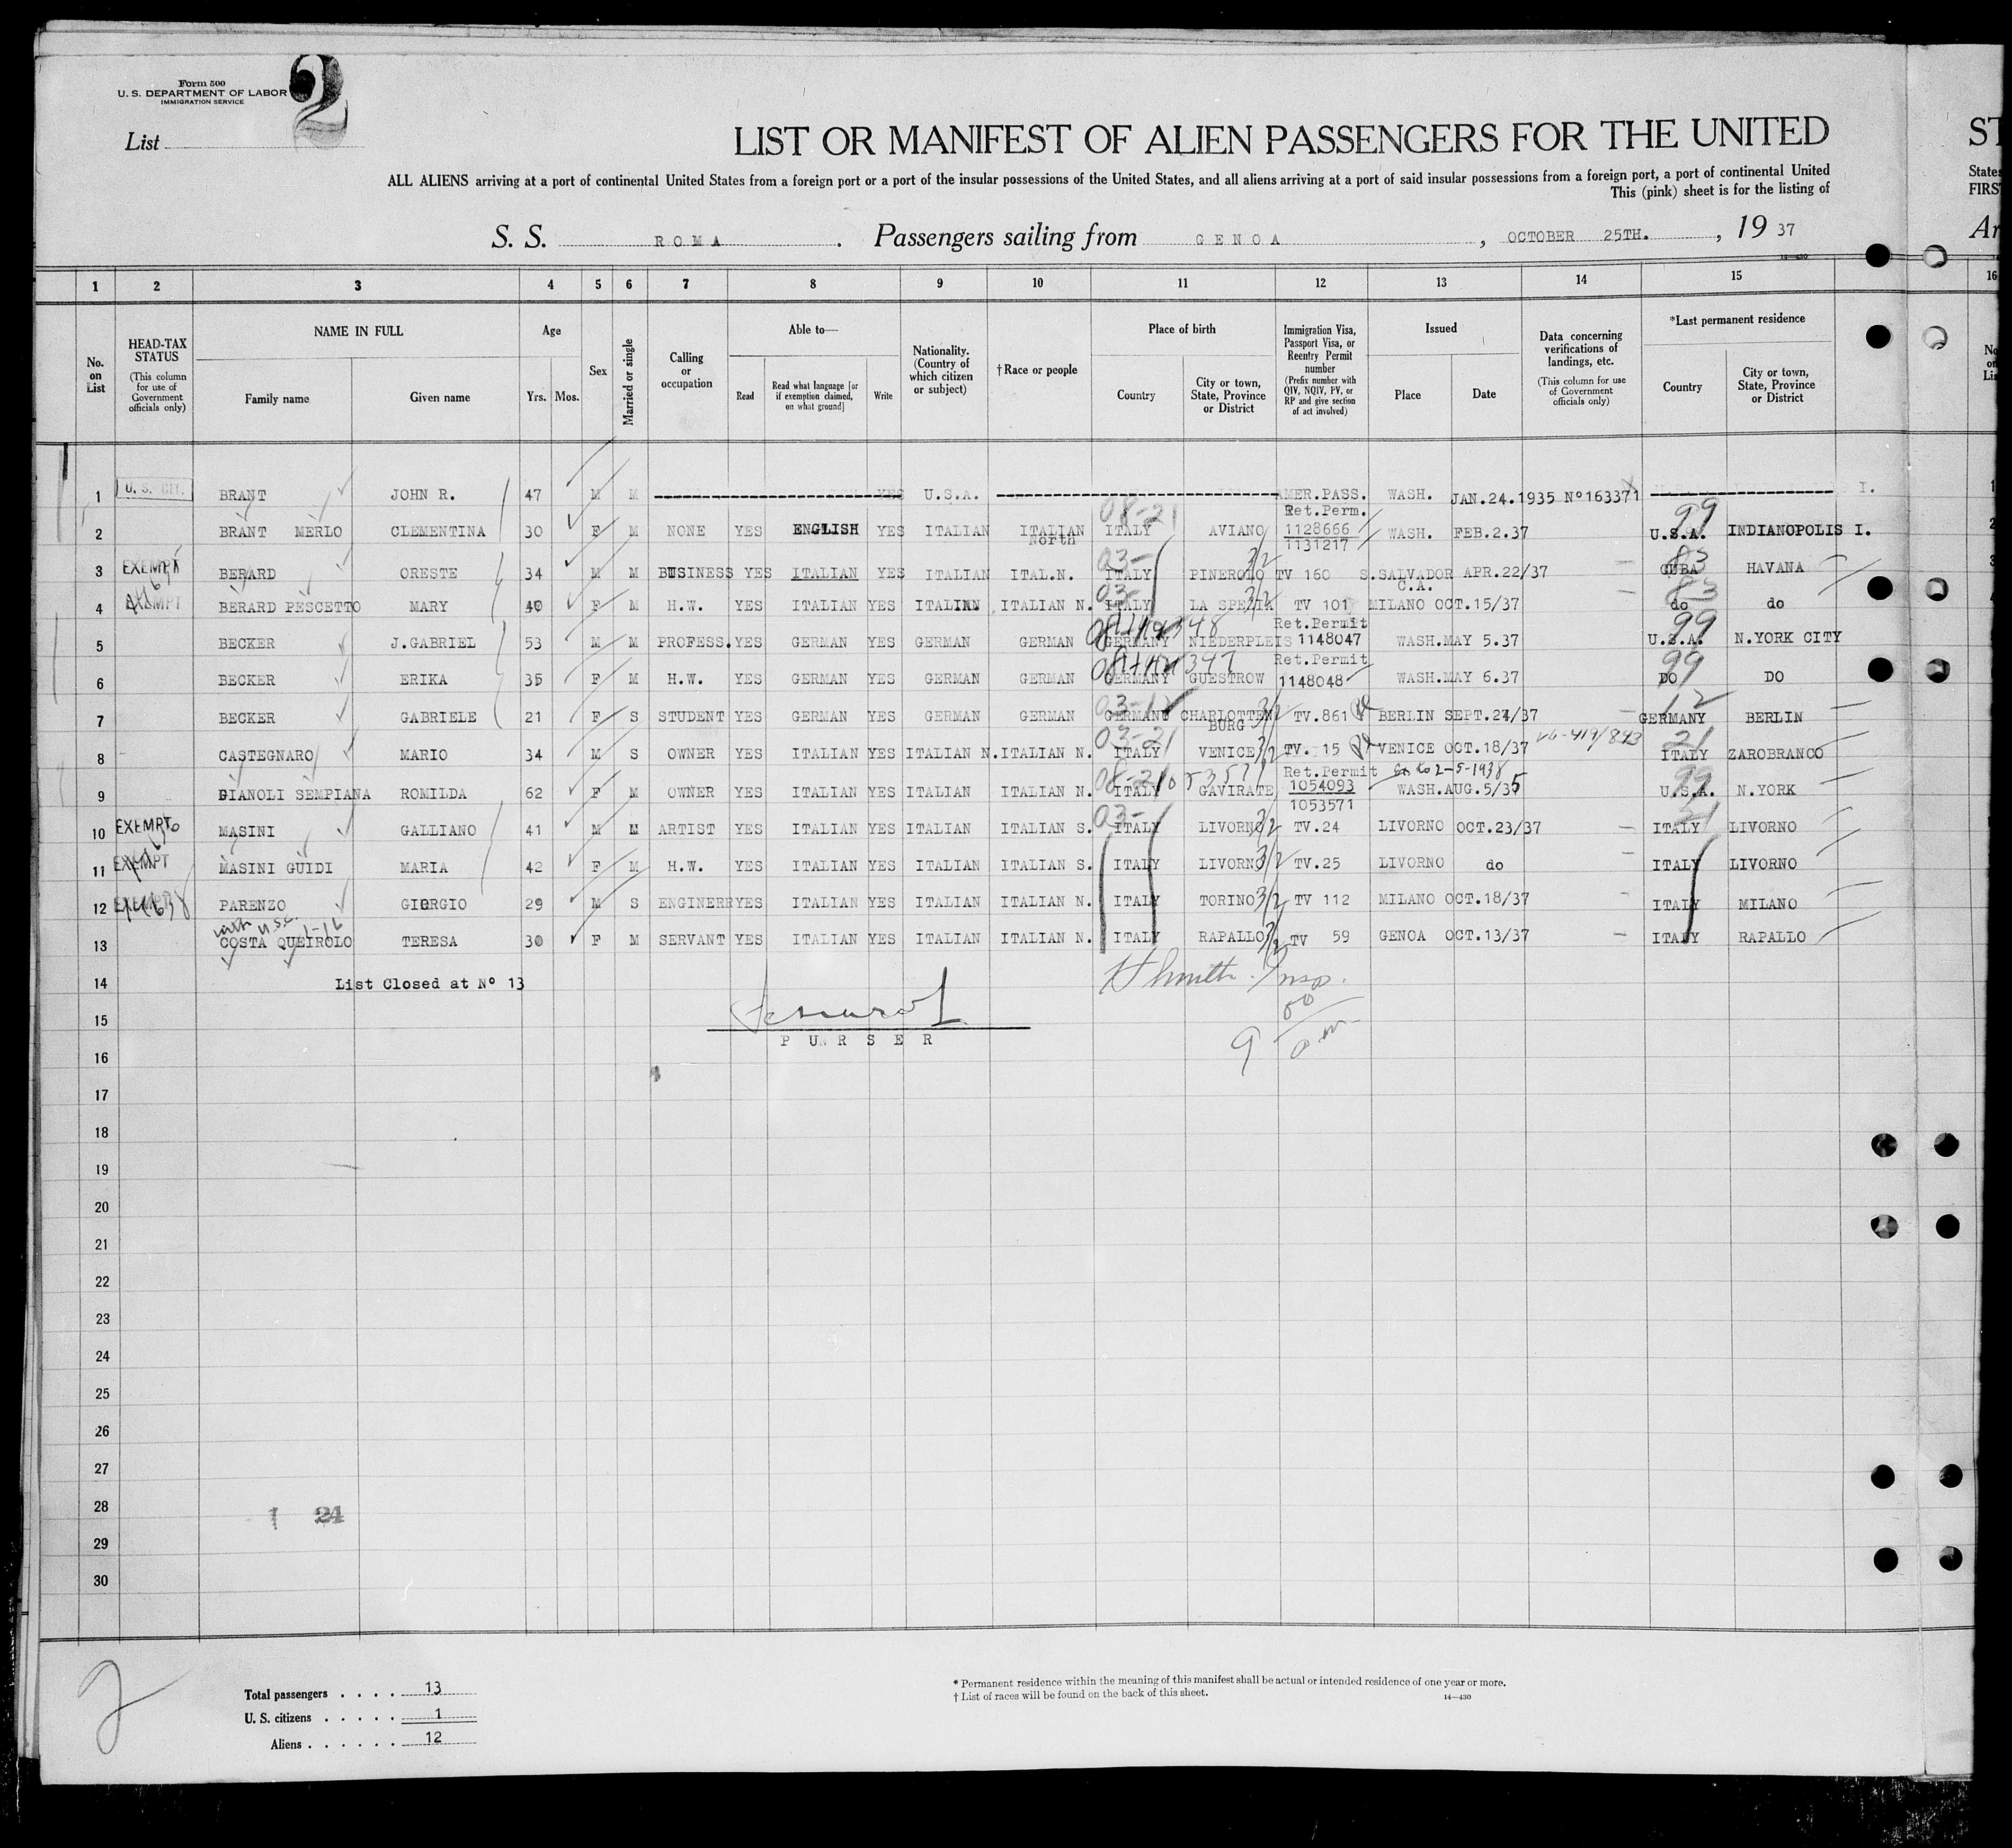 Form 500
U. S. DEPARTMENT OF LABOR
IMMIGRATION SERVICE
2
List
LIST OR MANIFEST OF ALIEN PASSENGERS FOR THE UNITED
ST
ALL ALIENS arriving at a port of continental United States from a foreign port or a port of the insular possessions of the United States, and all aliens arriving at a port of said insular possessions from a foreign port, a port of continental United
States
This (pink) sheet is for the listing of
FIRS
S. S. ROMA . Passengers sailing from GENOA , OCTOBER 25TH. , 19 37
Ar
14—430
1 2 3 4 5 6 7 8 9 10 11 12 13 14 15 16
No. on List
HEAD-TAX STATUS (This column for use of Government officials only)
NAME IN FULL Family name Given name
Age Yrs. Mos.
Sex
Married or single
Calling or occupation
Able to— Read Read what language [or if exemption claimed, on what ground] Write
Nationality. (Country of which citizen or subject)
†Race or people
Place of birth Country City or town, State, Province or District
Immigration Visa, Passport Visa, or Reentry Permit number (Prefix number with QIV, NQIV, PV, or RP and give section of act involved)
Issued Place Date
Data concerning verifications of landings, etc. (This column for use of Government officials only)
*Last permanent residence Country City or town, State, Province or District
No on Lis
1 U. S. CIT. BRANT JOHN R. 47 M M YES U.S.A. AMER.PASS. WASH. JAN.24.1935 Nº163371 I.
2 BRANT MERLO CLEMENTINA 30 F M NONE YES ENGLISH YES ITALIAN ITALIAN North 08-21 ITALY AVIANO Ret.Perm. 1128666 1131217 WASH. FEB.2.37 99 U.S.A. INDIANOPOLIS I.
3 EXEMPT BERARD ORESTE 34 M M BUSINESS YES ITALIAN YES ITALIAN ITAL.N. 03- ITALY PINEROLO 3/2 TV 160 S.SALVADOR C.A. APR.22/37 83 CUBA HAVANA
4 EXEMPT BERARD PESCETTO MARY 40 F M H.W. YES ITALIAN YES ITALIAN ITALIAN N. 03- ITALY LA SPEZIA 3/2 TV 101 MILANO OCT.15/37 83 do do
5 BECKER J.GABRIEL 53 M M PROFESS. YES GERMAN YES GERMAN GERMAN GERMANY NIEDERPLEIS Ret.Permit 1148047 WASH. MAY 5.37 99 U.S.A. N.YORK CITY
6 BECKER ERIKA 35 F M H.W. YES GERMAN YES GERMAN GERMAN GERMANY GUESTROW Ret.Permit 1148048 WASH. MAY 6.37 99 DO DO
7 BECKER GABRIELE 21 F S STUDENT YES GERMAN YES GERMAN GERMAN 03-12 GERMANY CHARLOTTEN BURG 3/2 TV.861 BERLIN SEPT.24/37 12 GERMANY BERLIN
8 CASTEGNARO MARIO 34 M S OWNER YES ITALIAN YES ITALIAN N. ITALIAN N. 03-21 ITALY VENICE 3/2 TV. 15 VENICE OCT.18/37 21 ITALY ZAROBRANCO
9 GIANOLI SEMPIANA ROMILDA 62 F M OWNER YES ITALIAN YES ITALIAN ITALIAN N. 08-21 ITALY GAVIRATE Ret.Permit 1054093 1053571 2-5-1938 WASH. AUG.5/35 99 U.S.A. N.YORK
10 EXEMPT MASINI GALLIANO 41 M M ARTIST YES ITALIAN YES ITALIAN ITALIAN S. 03- ITALY LIVORNO 3/2 TV.24 LIVORNO OCT.23/37 21 ITALY LIVORNO
11 EXEMPT MASINI GUIDI MARIA 42 F M H.W. YES ITALIAN YES ITALIAN ITALIAN S. ITALY LIVORNO 3/2 TV.25 LIVORNO do ITALY LIVORNO
12 EXEMPT PARENZO GIORGIO 29 M S ENGINERR YES ITALIAN YES ITALIAN ITALIAN N. ITALY TORINO 3/2 TV 112 MILANO OCT.18/37 ITALY MILANO
with U.S.C. 1-16
13 COSTA QUEIROLO TERESA 30 F M SERVANT YES ITALIAN YES ITALIAN ITALIAN N. ITALY RAPALLO 3/2 TV 59 GENOA OCT.13/37 ITALY RAPALLO
14 List Closed at Nº 13
Insp.
15
9 00 a.m.
PURSER
16
17
18
19
20
21
22
23
24
25
26
27
28
1 24
29
30
2
Total passengers . . . . 13
U. S. citizens . . . . . 1
Aliens . . . . . . 12
* Permanent residence within the meaning of this manifest shall be actual or intended residence of one year or more.
† List of races will be found on the back of this sheet.
14—430